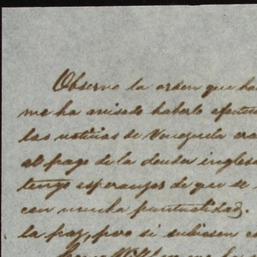 Observo la orden que ha
me ha avisado haberlo efectu
las noticias de Venezuela era
al pago de la deuda inglesa
tengo esperanzas de que se
con mucha puntualidad.
la paz, pero si subiesen c